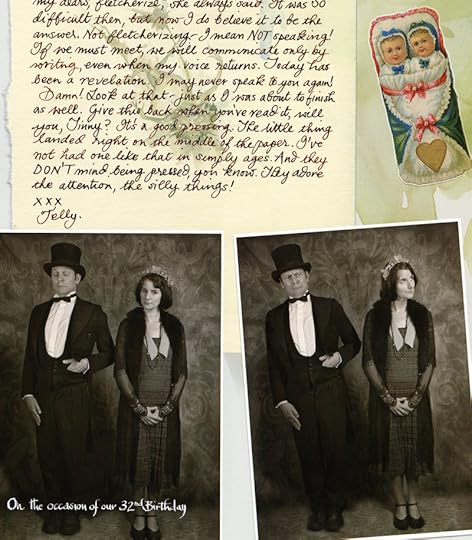 my dears, fletcherize, she always said. It was SO
difficult then, but now I do believe it to be the
answer. Not fletcherizing - I mean NOT speaking!
If we must meet, we will communicate only by
writing, even when my voice returns. Today has
been a revelation. I may never speak to you again!
Damn! Look at that - just as I was about to finish
as well. Give this back when you've read it, will
you, Tinny? It's a good pressing. The little thing
landed right on the middle of the paper. I've
not had one like that in simply ages. And they
DON'T mind being pressed, you know. They adore
the attention, the silly things!
xxx
Jelly.
On the occasion of our 32nd Birthday